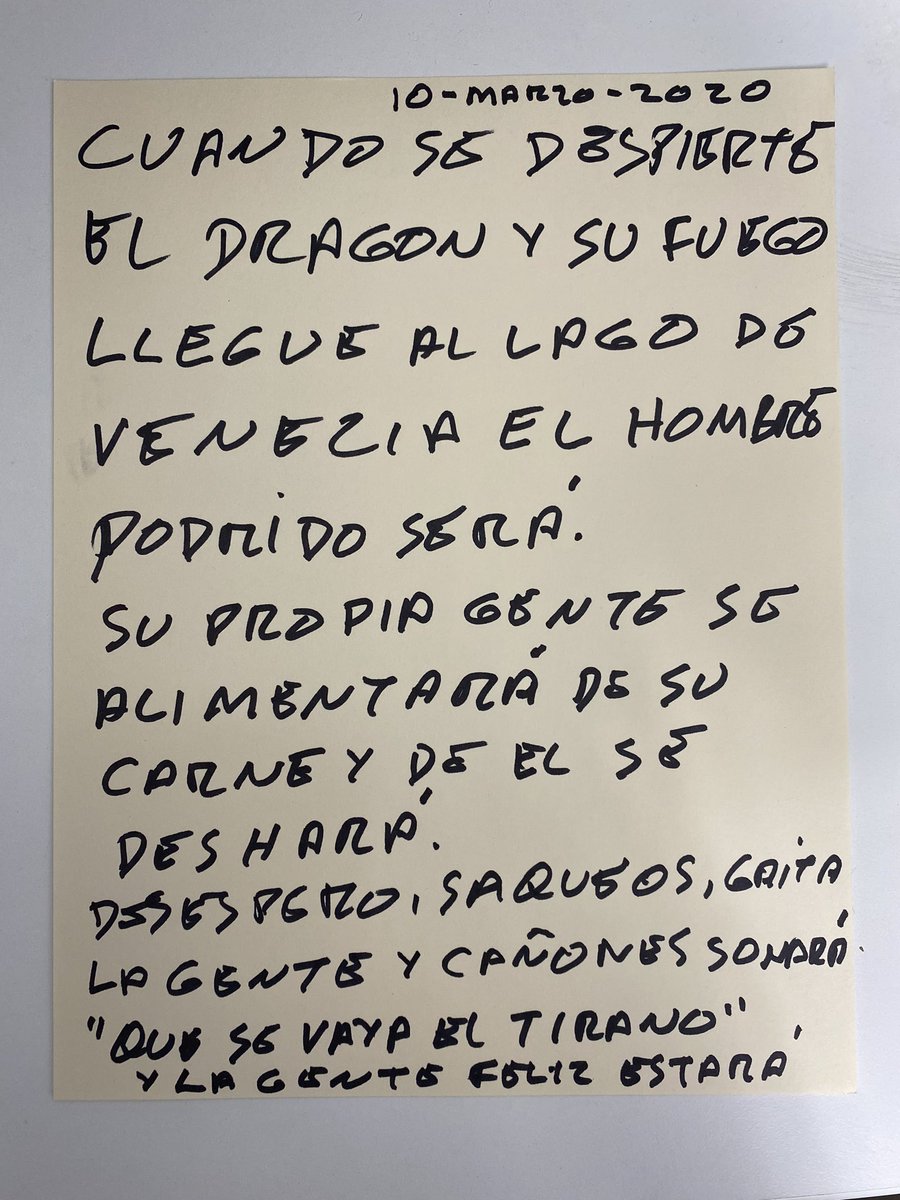 10-MARZO-2020
CUANDO SE DESPIERTE
EL DRAGON Y SU FUEGO
LLEGUE AL LAGO DE
VENEZIA EL HOMBRE
PODRIDO SERÁ.
SU PROPIA GENTE SE
ALIMENTARÁ DE SU
CARNE Y DE EL SE
DESHARÁ.
DESESPERO, SAQUEOS, GRITA
LA GENTE Y CAÑONES SONARÁ
"QUE SE VAYA EL TIRANO"
Y LA GENTE FELIZ ESTARÁ